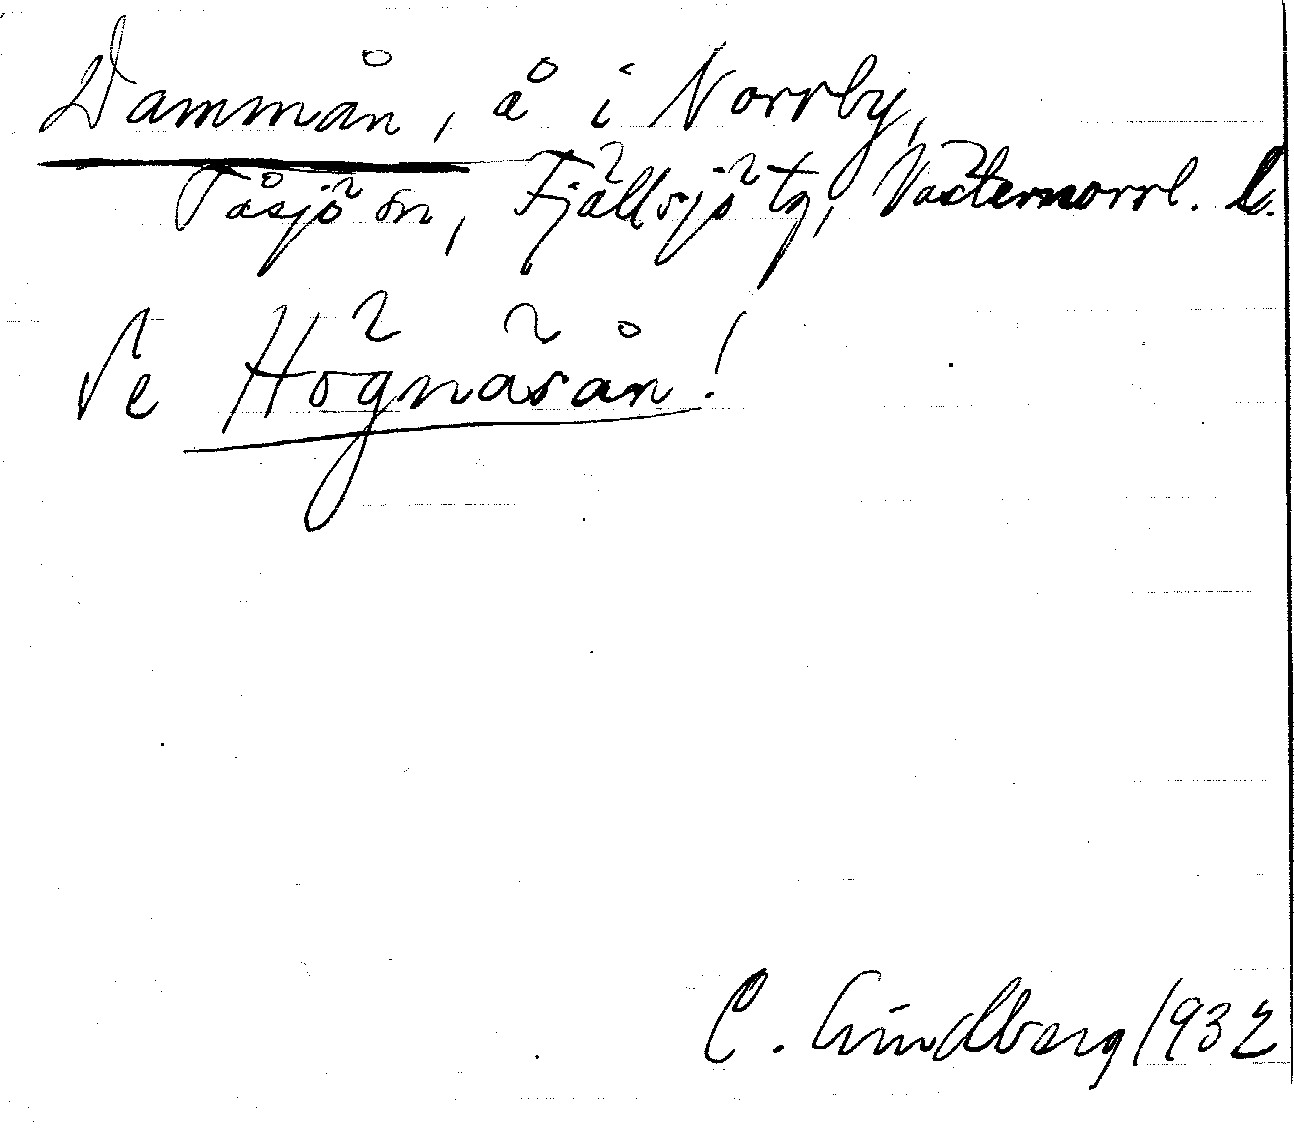 Dammån, å i Norrby,
Tåsjö sn, Fjällsjö tg, Västernorrl. l.
Se Högnäsån!
C. Lindberg 1932